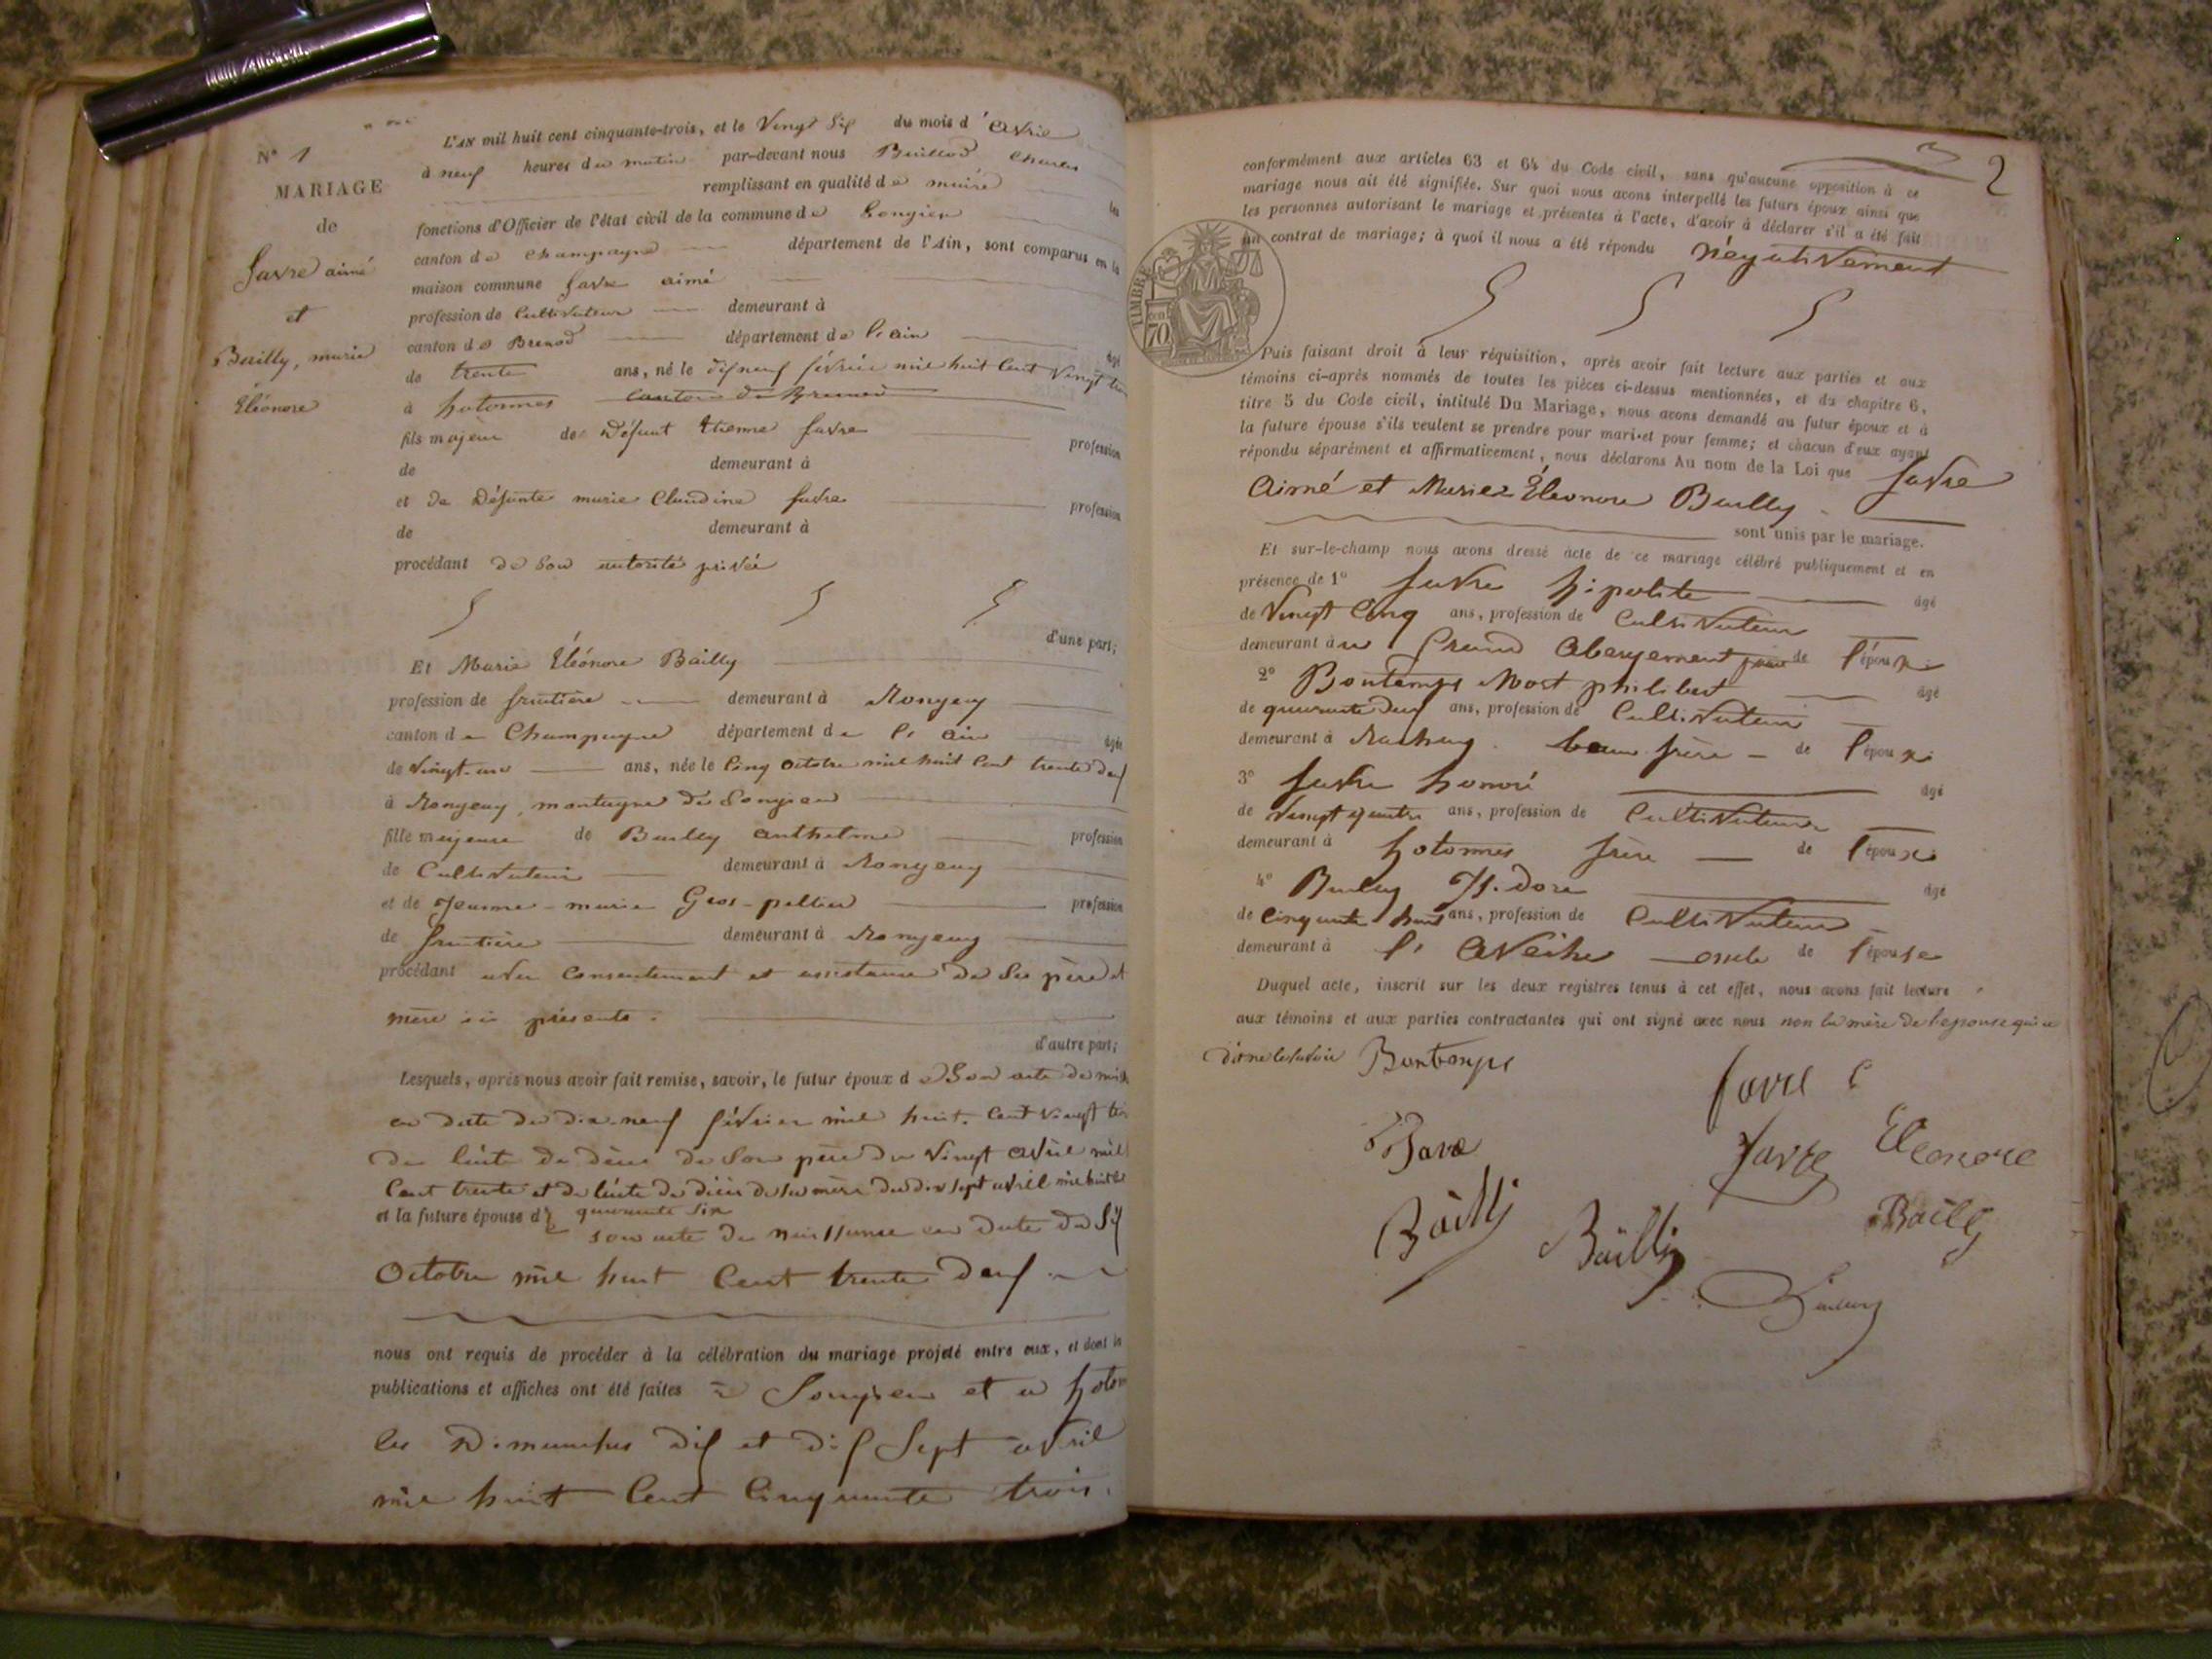 N° 1
MARIAGE
de
favre aimé
et
Bailly, marie
Eléonore
L'AN mil huit cent cinquante-trois, et le Vingt Six du mois d'avril
à neuf heures du matin par-devant nous Charles
remplissant en qualité de maire les
fonctions d'Officier de l'état civil de la commune de Songieu
canton de Champagne département de l'Ain, sont comparus en la
maison commune favre aimé
profession de Cultivateur demeurant à
canton de Brenod département de l'ain âgé
de trente ans, né le dixneuf février mil huit Cent Vingt trois
à hotonnes canton de Brenod
fils majeur de Défunt Etienne favre profession
de demeurant à
et de Défunte marie Claudine favre profession
de demeurant à
procédant de Son autorité privée
d'une part;
Et Marie Eléonore Bailly
profession de fruitière demeurant à Rongeuy
canton de Champagne département de l'ain âgée
de vingt-un ans, née le Cinq octobre mil huit Cent trente deux
à Rongeuy, montagne de Songieu
fille majeure de Bailly anthelme profession
de Cultivateur demeurant à Rongeuy
et de Jeanne-marie Gros-pellier profession
de fruitière demeurant à Rongeuy
procédant avec Consentement et assistance de Ses père et
mère ici présents.
d'autre part;
Lesquels, après nous avoir fait remise, savoir, le futur époux de Son acte de
en date du dix-neuf février mil huit. Cent vingt trois
de l'acte de décès de Son père du Vingt avril mil
Cent trente et de l'acte de décès de sa mère du dix sept avril mil huit
quarante Six
et la future épouse de son acte de naissance en date du Six
Octobre mil huit Cent trente deux
nous ont requis de procéder à la célébration du mariage projeté entre eux, et dont les
publications et affiches ont été faites à Songieu et a
les Dimanches dix et dix Sept avril
mil huit Cent Cinquante trois.
2
conformément aux articles 63 et 64 du Code civil, sans qu'aucune opposition à ce
mariage nous ait été signifiée. Sur quoi nous avons interpellé les futurs époux ainsi que
les personnes autorisant le mariage et présentes à l'acte, d'avoir à déclarer s'il a été fait
un contrat de mariage; à quoi il nous a été répondu négativement
TIMBRE
70
Puis faisant droit à leur réquisition, après avoir fait lecture aux parties et aux
témoins ci-après nommés de toutes les pièces ci-dessus mentionnées, et du chapitre 6,
titre 5 du Code civil, intitulé Du Mariage, nous avons demandé au futur époux et à
la future épouse s'ils veulent se prendre pour mari et pour femme; et chacun d'eux ayant
répondu séparément et affirmativement, nous déclarons Au nom de la Loi que favre
Aimé et Marie Eléonore Bailly
sont unis par le mariage.
Et sur-le-champ nous avons dressé acte de ce mariage célébré publiquement et en
présence de 1° favre hipolite âgé
de Vingt Cinq ans, profession de Cultivateur
demeurant au Grand Abergement de l'époux
2° Bontemps Most philibert âgé
de quarante deux ans, profession de Cultivateur
demeurant à beau frère de l'époux
3° favre honoré âgé
de Vingt quatre ans, profession de Cultivateur
demeurant à hotonnes frère de l'époux
4° Bailly Isidore âgé
de cinquante ans, profession de Cultivateur
demeurant à oncle de l'épouse
Duquel acte, inscrit sur les deux registres tenus à cet effet, nous avons fait lecture
aux témoins et aux parties contractantes qui ont signé avec nous non la mère de l'epouse qui a
dit ne le savoir Bontemps
favre
favre Eleonore
Bailly Bailly Bailly